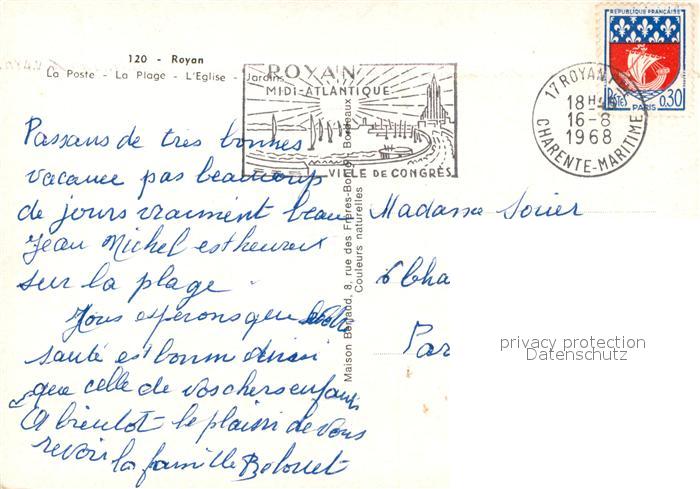 120 - Royan
La Poste - La Plage - L'Eglise - Jardins
ROYAN
MIDI-ATLANTIQUE
VILLE DE CONGRÈS
17 ROYAN
18H
16-8
1968
CHARENTE-MARITIME
REPUBLIQUE FRANÇAISE
POSTES
PARIS
0,30
Passons de tres bonnes
vacance pas beaucoup
de jours vraiment beau
Jean Michel est heureux
sur la plage
Nous esperons que
santé est bonne ainsi
que celle de vos chers enfants
A bientot le plaisir de vous
revoir
la famille
Maison Berjaud, 8, rue des Frères-Bonie, Bordeaux
Couleurs naturelles
Madame
Par
privacy protection
Datenschutz